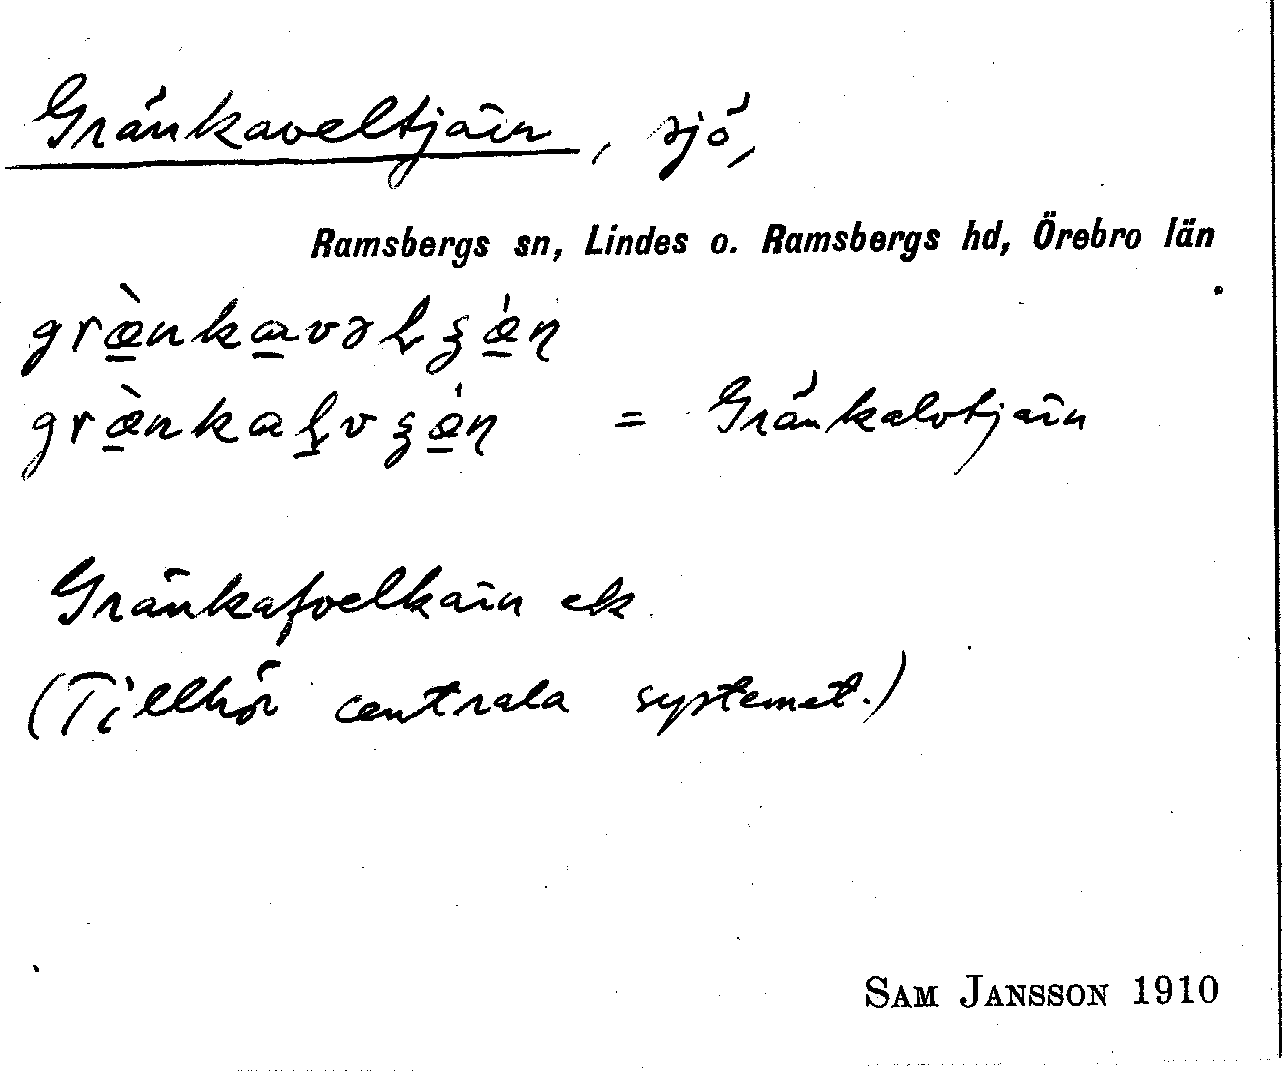 Gränkaveltjärn, sjö,
Ramsbergs sn, Lindes o. Ramsbergs hd, Örebro län
= Gränkalvtjärn
Gränkafvelkärn ek.
(Tillhör centrala systemet.)
SAM JANSSON 1910